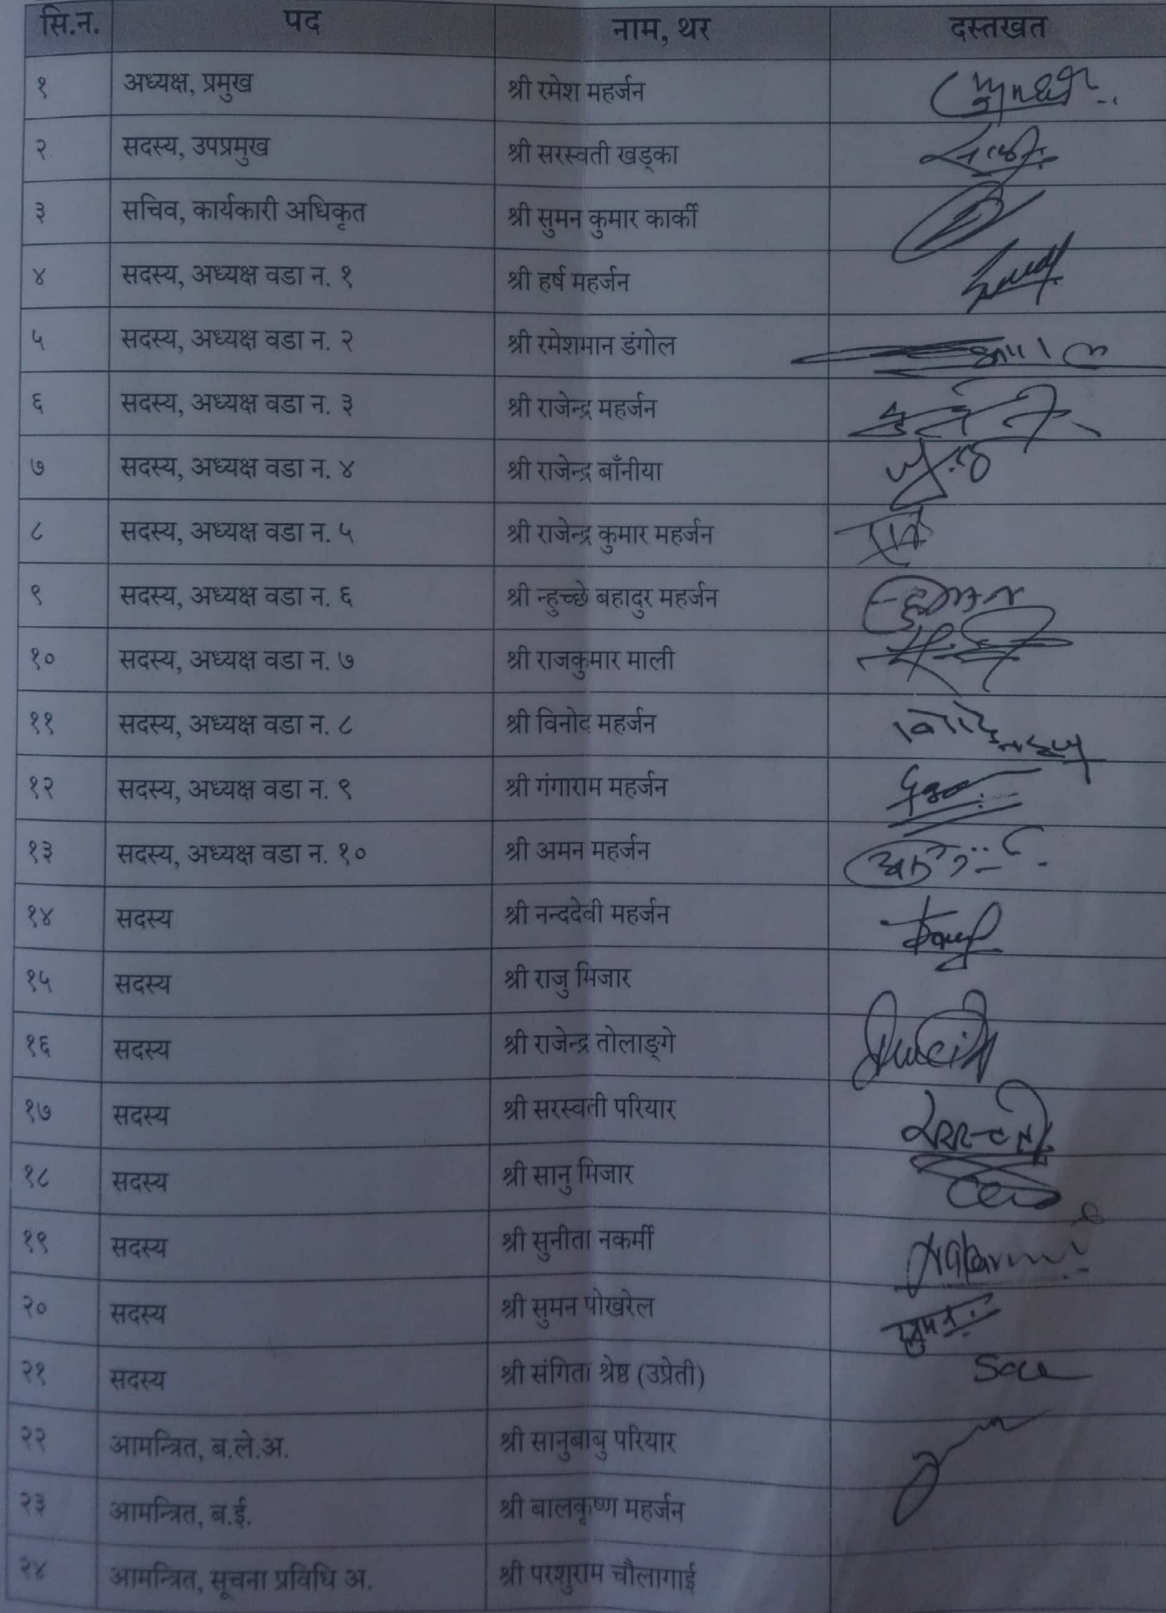 सि.न. पद नाम, थर दस्तखत
१ अध्यक्ष, प्रमुख श्री रमेश महर्जन
२ सदस्य, उपप्रमुख श्री सरस्वती खड्का
३ सचिव, कार्यकारी अधिकृत श्री सुमन कुमार कार्की
४ सदस्य, अध्यक्ष वडा न. १ श्री हर्ष महर्जन
५ सदस्य, अध्यक्ष वडा न. २ श्री रमेशमान डंगोल
६ सदस्य, अध्यक्ष वडा न. ३ श्री राजेन्द्र महर्जन
७ सदस्य, अध्यक्ष वडा न. ४ श्री राजेन्द्र बाँनीया
८ सदस्य, अध्यक्ष वडा न. ५ श्री राजेन्द्र कुमार महर्जन
९ सदस्य, अध्यक्ष वडा न. ६ श्री न्हुच्छे बहादुर महर्जन
१० सदस्य, अध्यक्ष वडा न. ७ श्री राजकुमार माली
११ सदस्य, अध्यक्ष वडा न. ८ श्री विनोद महर्जन
१२ सदस्य, अध्यक्ष वडा न. ९ श्री गंगाराम महर्जन
१३ सदस्य, अध्यक्ष वडा न. १० श्री अमन महर्जन
१४ सदस्य श्री नन्ददेवी महर्जन
१५ सदस्य श्री राजु मिजार
१६ सदस्य श्री राजेन्द्र तोलाङ्गे
१७ सदस्य श्री सरस्वती परियार
१८ सदस्य श्री सानु मिजार
१९ सदस्य श्री सुनीता नकर्मी
२० सदस्य श्री सुमन पोखरेल
२१ सदस्य श्री संगिता श्रेष्ठ (उप्रेती)
२२ आमन्त्रित, ब.ले.अ. श्री सानुबाबु परियार
२३ आमन्त्रित, ब.ई. श्री बालकृष्ण महर्जन
२४ आमन्त्रित, सूचना प्रविधि अ. श्री परशुराम चौलागाई